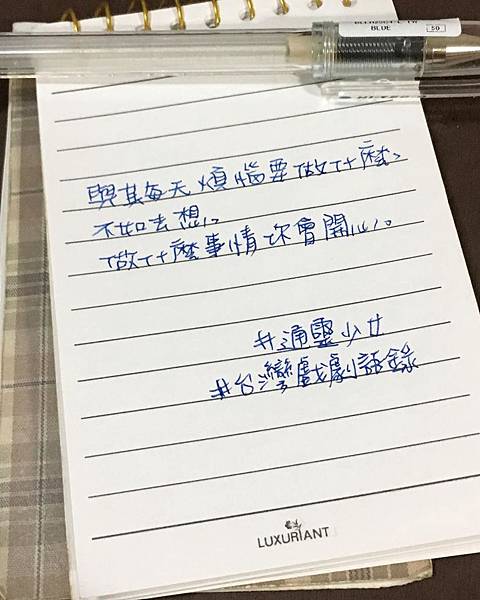 BLUE
59
與其每天煩惱要做什麼、
不如去想、
做什麼事情你會開心。
#通靈少女
#台灣戲劇語錄
LUXURIANT